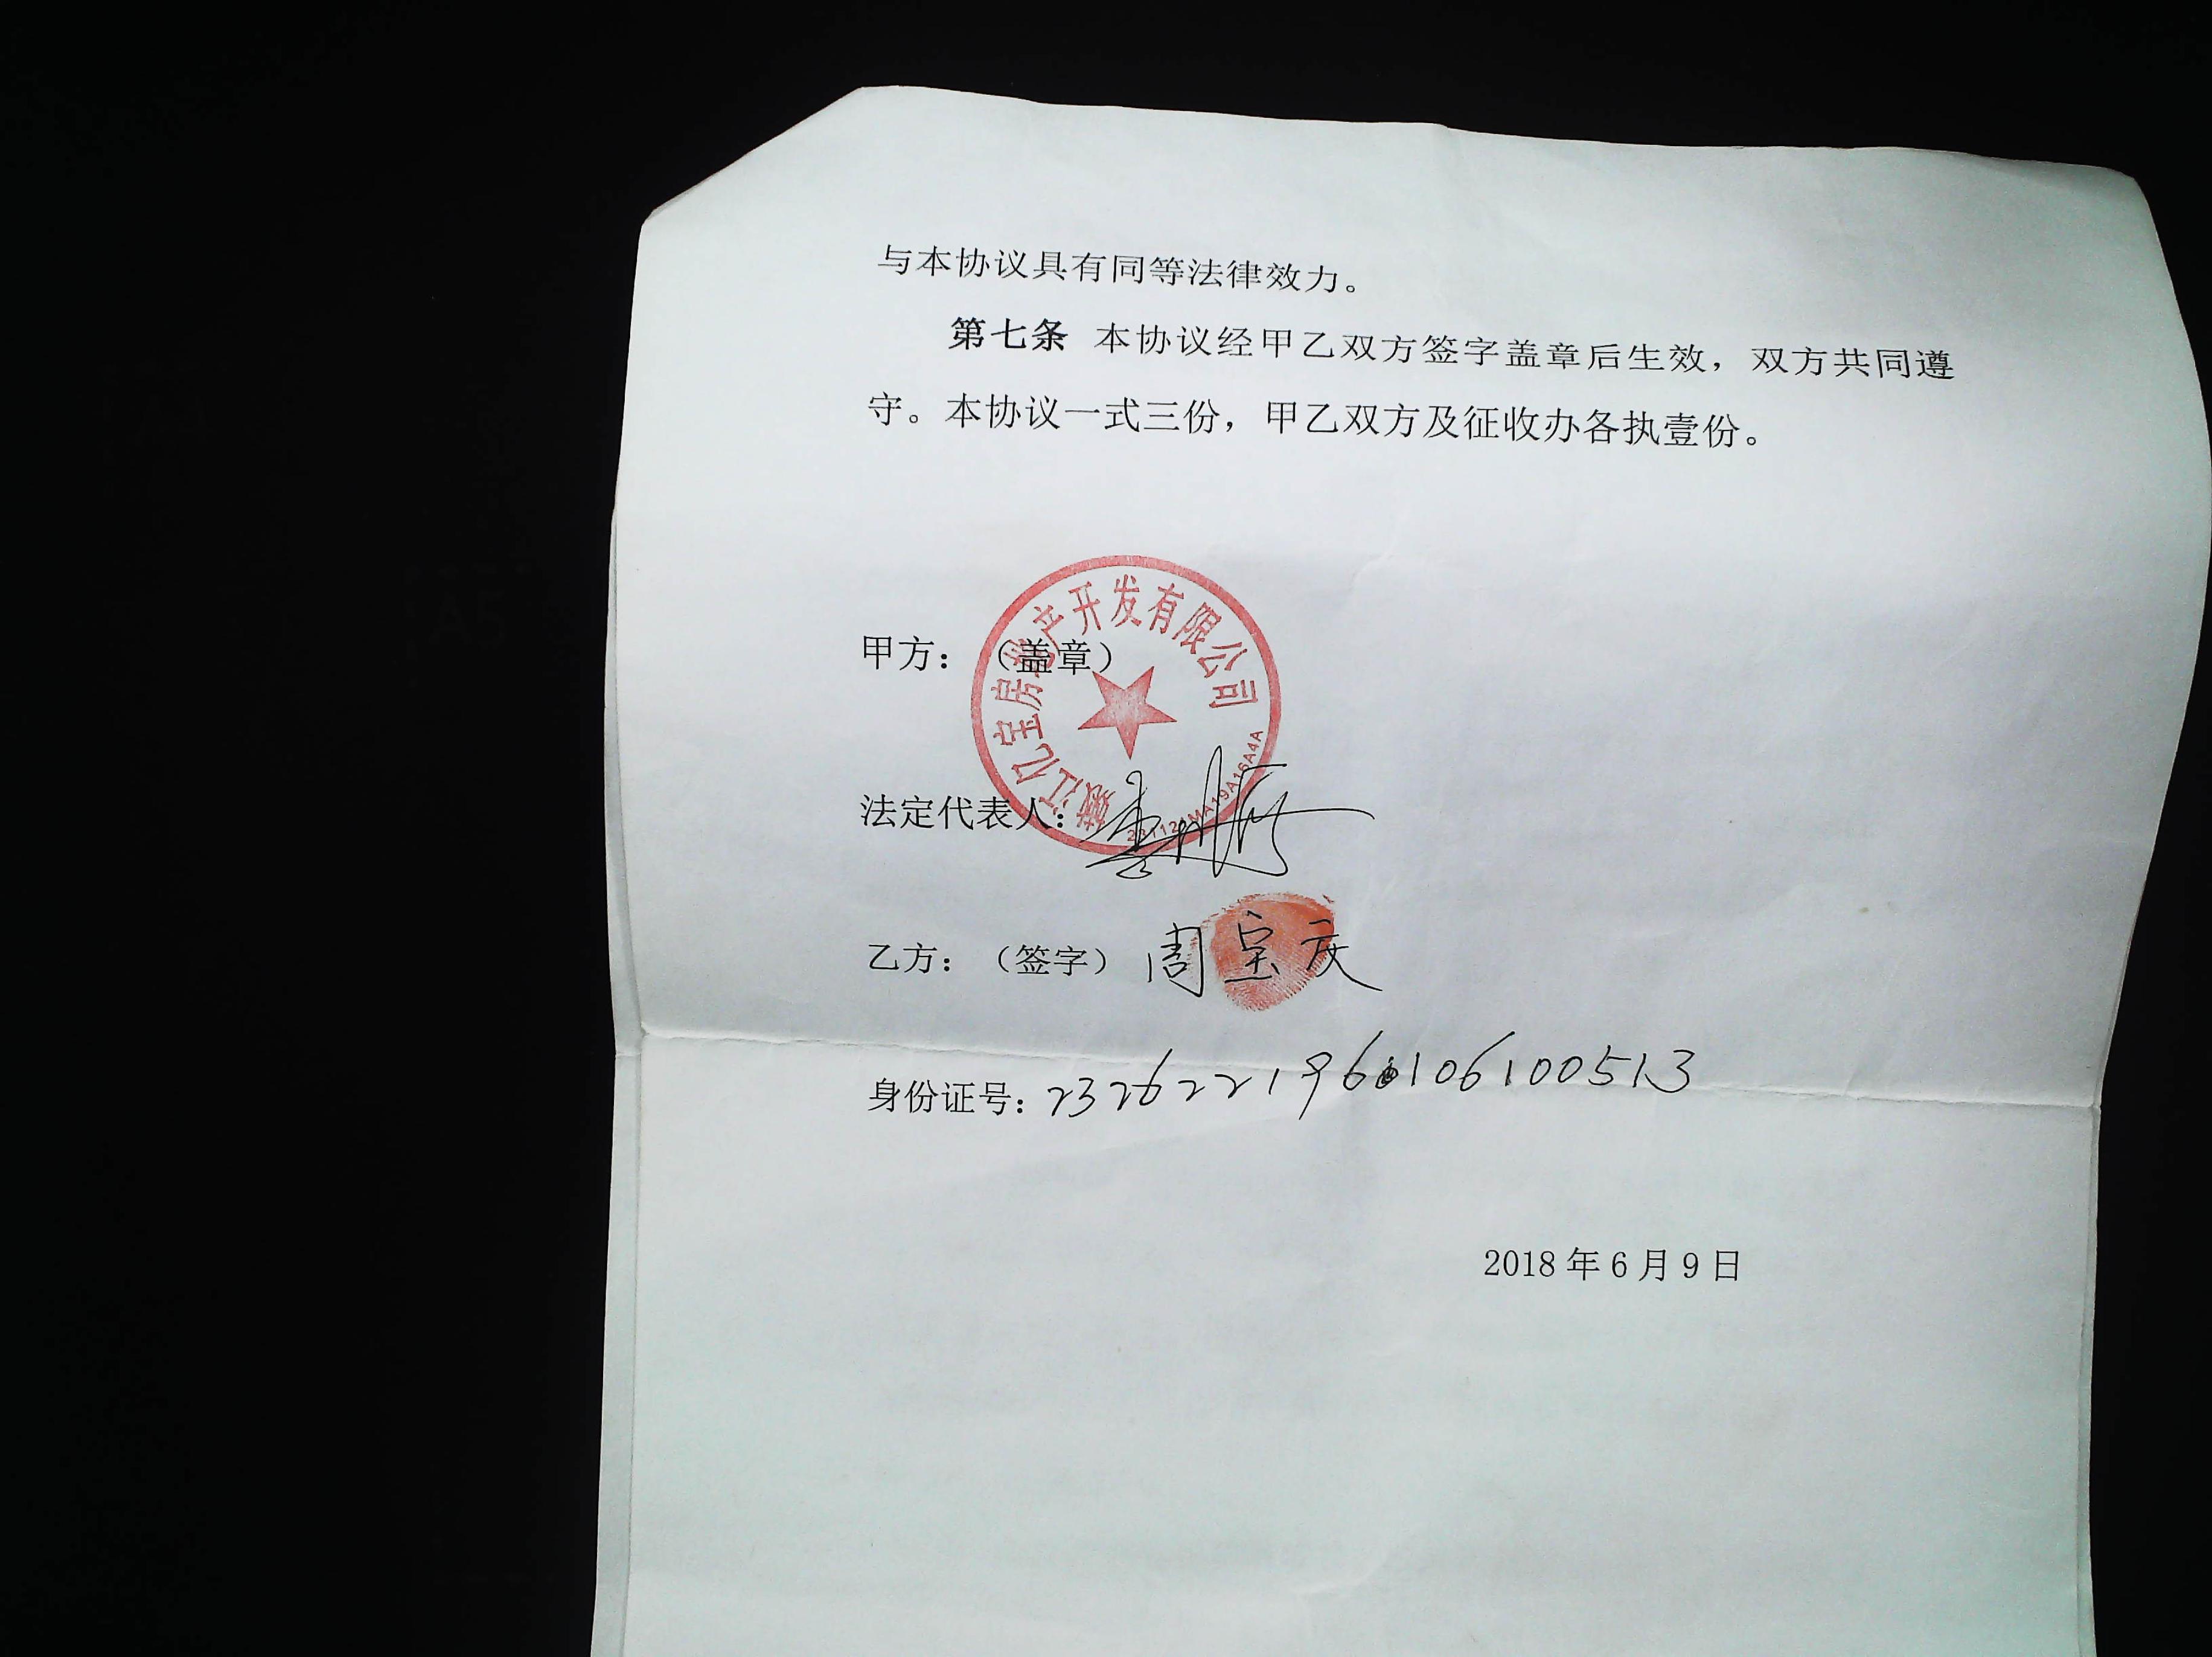 与本协议具有同等法律效力。
第七条 本协议经甲乙双方签字盖章后生效，双方共同遵
守。本协议一式三份，甲乙双方及征收办各执壹份。
甲方：（盖章）
嫩江亿宝房地产开发有限公司
法定代表人：
乙方：（签字）周宝庆
身份证号：
2018年6月9日